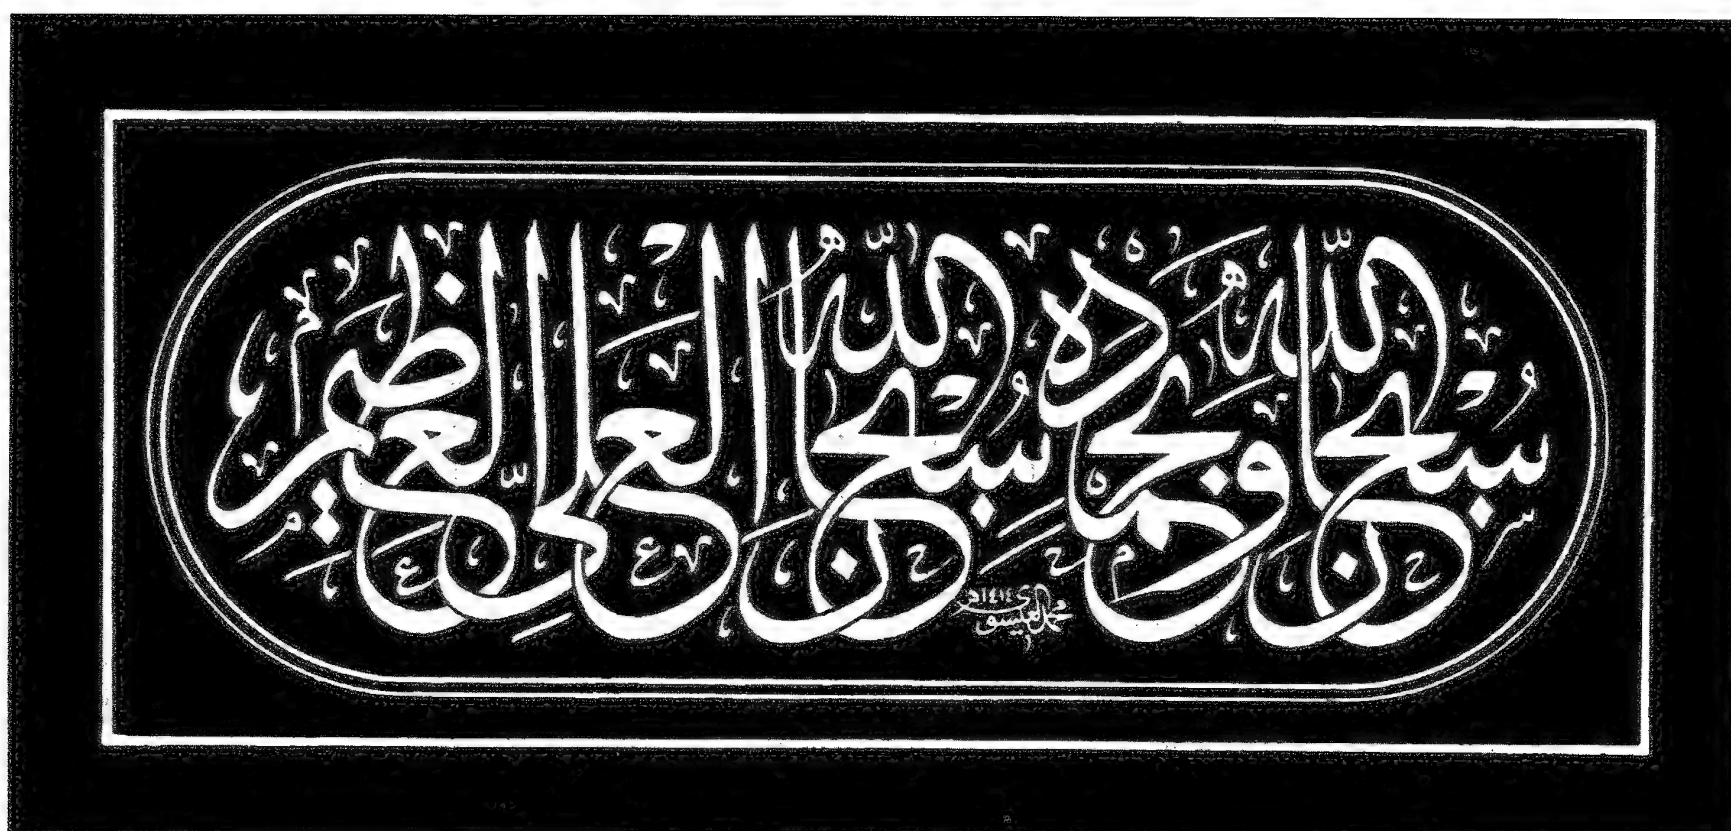 سُبْحَانَ اللَّهِ وَبِحَمْدِهِ سُبْحَانَ اللَّهِ الْعَلِيِّ الْعَظِيمِ
١٤١٤هـ